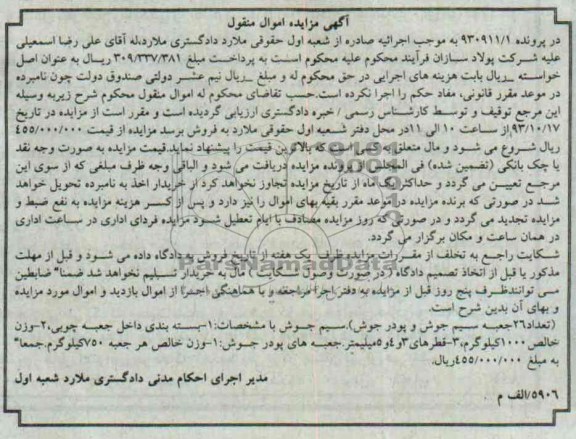 آگهی مزایده اموال منقول
در پرونده ۹۳۰۹۱۱/۱ به موجب اجرائیه صادره از شعبه اول حقوقی ملارد دادگستری ملارد،له آقای علی رضا اسمعیلی
علیه شرکت پولاد سازان فرآیند محکوم علیه محکوم است به پرداخت مبلغ ۳۰۹/۳۳۷/۳۸۱ ریال به عنوان اصل
خواسته ــ ریال بابت هزینه های اجرایی در حق محکوم له و مبلغ ــ ریال نیم عشر دولتی صندوق دولت چون نامبرده
در موعد مقرر قانونی، مفاد حکم را اجرا نکرده است.حسب تقاضای محکوم له اموال منقول محکوم شرح زیربه وسیله
این مرجع توقیف و توسط کارشناس رسمی / خبره دادگستری ارزیابی گردیده است و مقرر است از مزایده در تاریخ
۹۳/۱۰/۱۷از ساعت ۱۰ الی ۱۱در محل دفتر شعبه اول حقوقی ملارد به فروش برسد مزایده از قیمت ۴۵۵/۰۰۰/۰۰۰
ریال شروع می شود و مال متعلق به کسی است که بالاترین قیمت را پیشنهاد نماید.قیمت مزایده به صورت وجه نقد
یا چک بانکی (تضمین شده) فی المجلس از برنده مزایده دریافت می شود و الباقی وجه ظرف مبلغی که از سوی این
مرجع تعیین می گردد و حداکثر یک ماه از تاریخ مزایده تجاوز نخواهد کرد از خریدار اخذ به نامبرده تحویل خواهد
شد در صورتی که برنده مزایده در موعد مقرر بقیه بهای اموال را نیز دارد و پس از کسر هزینه مزایده به نفع ضبط و
مزایده تجدید می گردد و در صورتی که روز مزایده مصادف با ایام تعطیل شود مزایده فردای اداری در ساعت اداری
در همان ساعت و مکان برگزار می گردد.
شکایت راجع به تخلف از مقررات مزایده ظرف یک هفته از تاریخ فروش به دادگاه داده می شود و قبل از مهلت
مذکور یا قبل از اتخاذ تصمیم دادگاه در صورت وصول شکایت مال به خریدار تسلیم نخواهد شد ضمنا" ضابطین
می توانندظرف پنج روز قبل از مزایده به دفتر اجرا مراجعه و با هماهنگی اجرا از اموال بازدید و اموال مورد مزایده
و بهای آن بدین شرح است.
(تعداد۲۶جعبه سیم جوش و پودر جوش).سیم جوش با مشخصات:۱-بسته بندی داخل جعبه چوبی،۲-وزن
خالص ۱۰۰۰کیلوگرم،۳-قطرهای۳و۴و۵میلیمتر.جعبه های پودر جوش:۱-وزن خالص هر جعبه ۷۵۰کیلوگرم.جمعا"
به مبلغ ۴۵۵/۰۰۰/۰۰۰ریال.
مدیر اجرای احکام مدنی دادگستری ملارد شعبه اول
۵۹۰۶/الف م
ParsNamadData